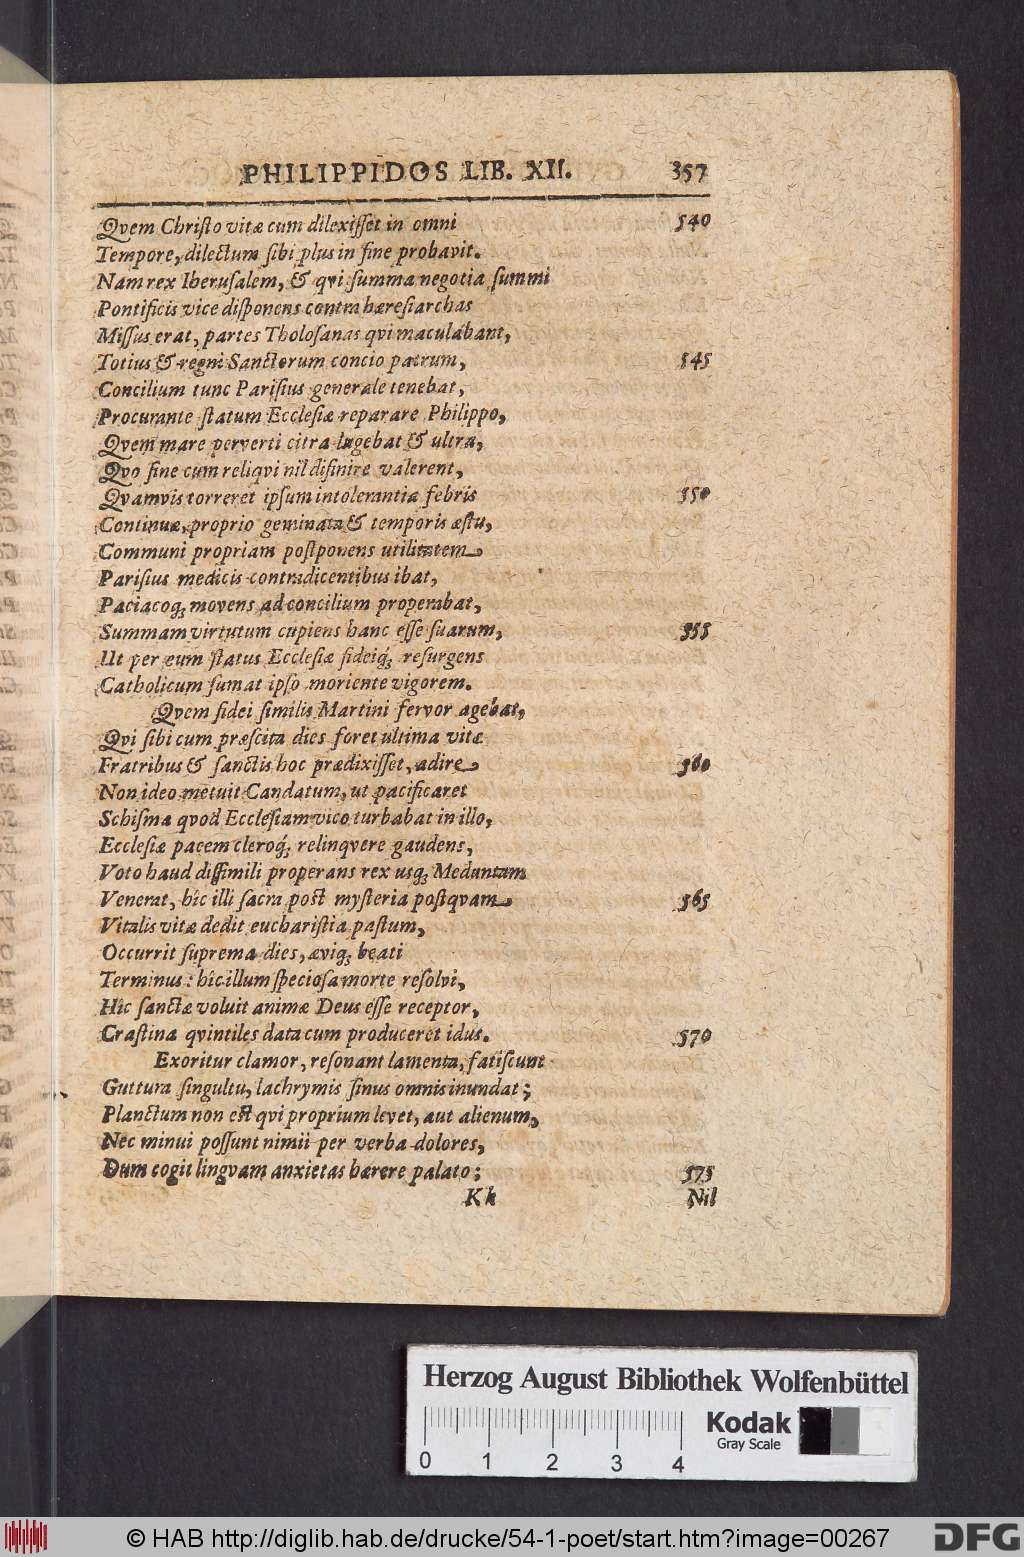 PHILIPPIDOS LIB. XII. 357
Qvem Christo vitæ cum dilexisset in omni 540
Tempore, dilectum sibi plus in fine probavit.
Nam rex Iherusalem, & qvi summa negotia summi
Pontificis vice disponens contra hæresiarchas
Missus erat, partes Tholosanas qvi maculabant,
Totius & regni Sanctorum concio patrum, 545
Concilium tunc Parisius generale tenebat,
Procurante statum Ecclesiæ reparare Philippo,
Qvem mare perverti citra lugebat & ultra,
Qvo sine cum reliqvi nil difinire valerent,
Qvamvis torreret ipsum intolerantia febris 550
Continuæ, proprio geminata & temporis æstu,
Communi propriam postponens utilitatem
Parisius medicis contradicentibus ibat,
Paciacoq; movens ad concilium properabat,
Summam virtutum cupiens hanc esse suarum, 555
Ut per eum status Ecclesiæ fideiq́; resurgens
Catholicum sumat ipso moriente vigorem.
Qvem fidei similis Martini fervor agebat,
Qvi sibi cum præscita dies foret ultima vitæ
Fratribus & sanctis hoc prædixisset, adire 560
Non ideo metuit Candatum, ut pacificaret
Schisma qvod Ecclesiam vico turbabat in illo,
Ecclesiæ pacem cleroq́; relinqvere gaudens,
Voto haud dissimili properans rex usq; Meduntam
Venerat, hîc illi sacra post mysteria postqvam 565
Vitalis vitæ dedit eucharistia pastum,
Occurrit suprema dies, æviq; beati
Terminus: hîc illum speciosa morte resolvi,
Hîc sanctæ voluit animæ Deus esse receptor,
Crastina qvintiles data cum produceret idus. 570
Exoritur clamor, resonant lamenta, fatiscunt
Guttura singultu, lachrymis sinus omnis inundat;
Planctum non est qvi proprium levet, aut alienum,
Nec minui possunt nimii per verba dolores,
Dum cogit lingvam anxietas hærere palato; 575
Kk Nil
Herzog August Bibliothek Wolfenbüttel
0 1 2 3 4
Kodak
Gray Scale
© HAB http://diglib.hab.de/drucke/54-1-poet/start.htm?image=00267
DFG